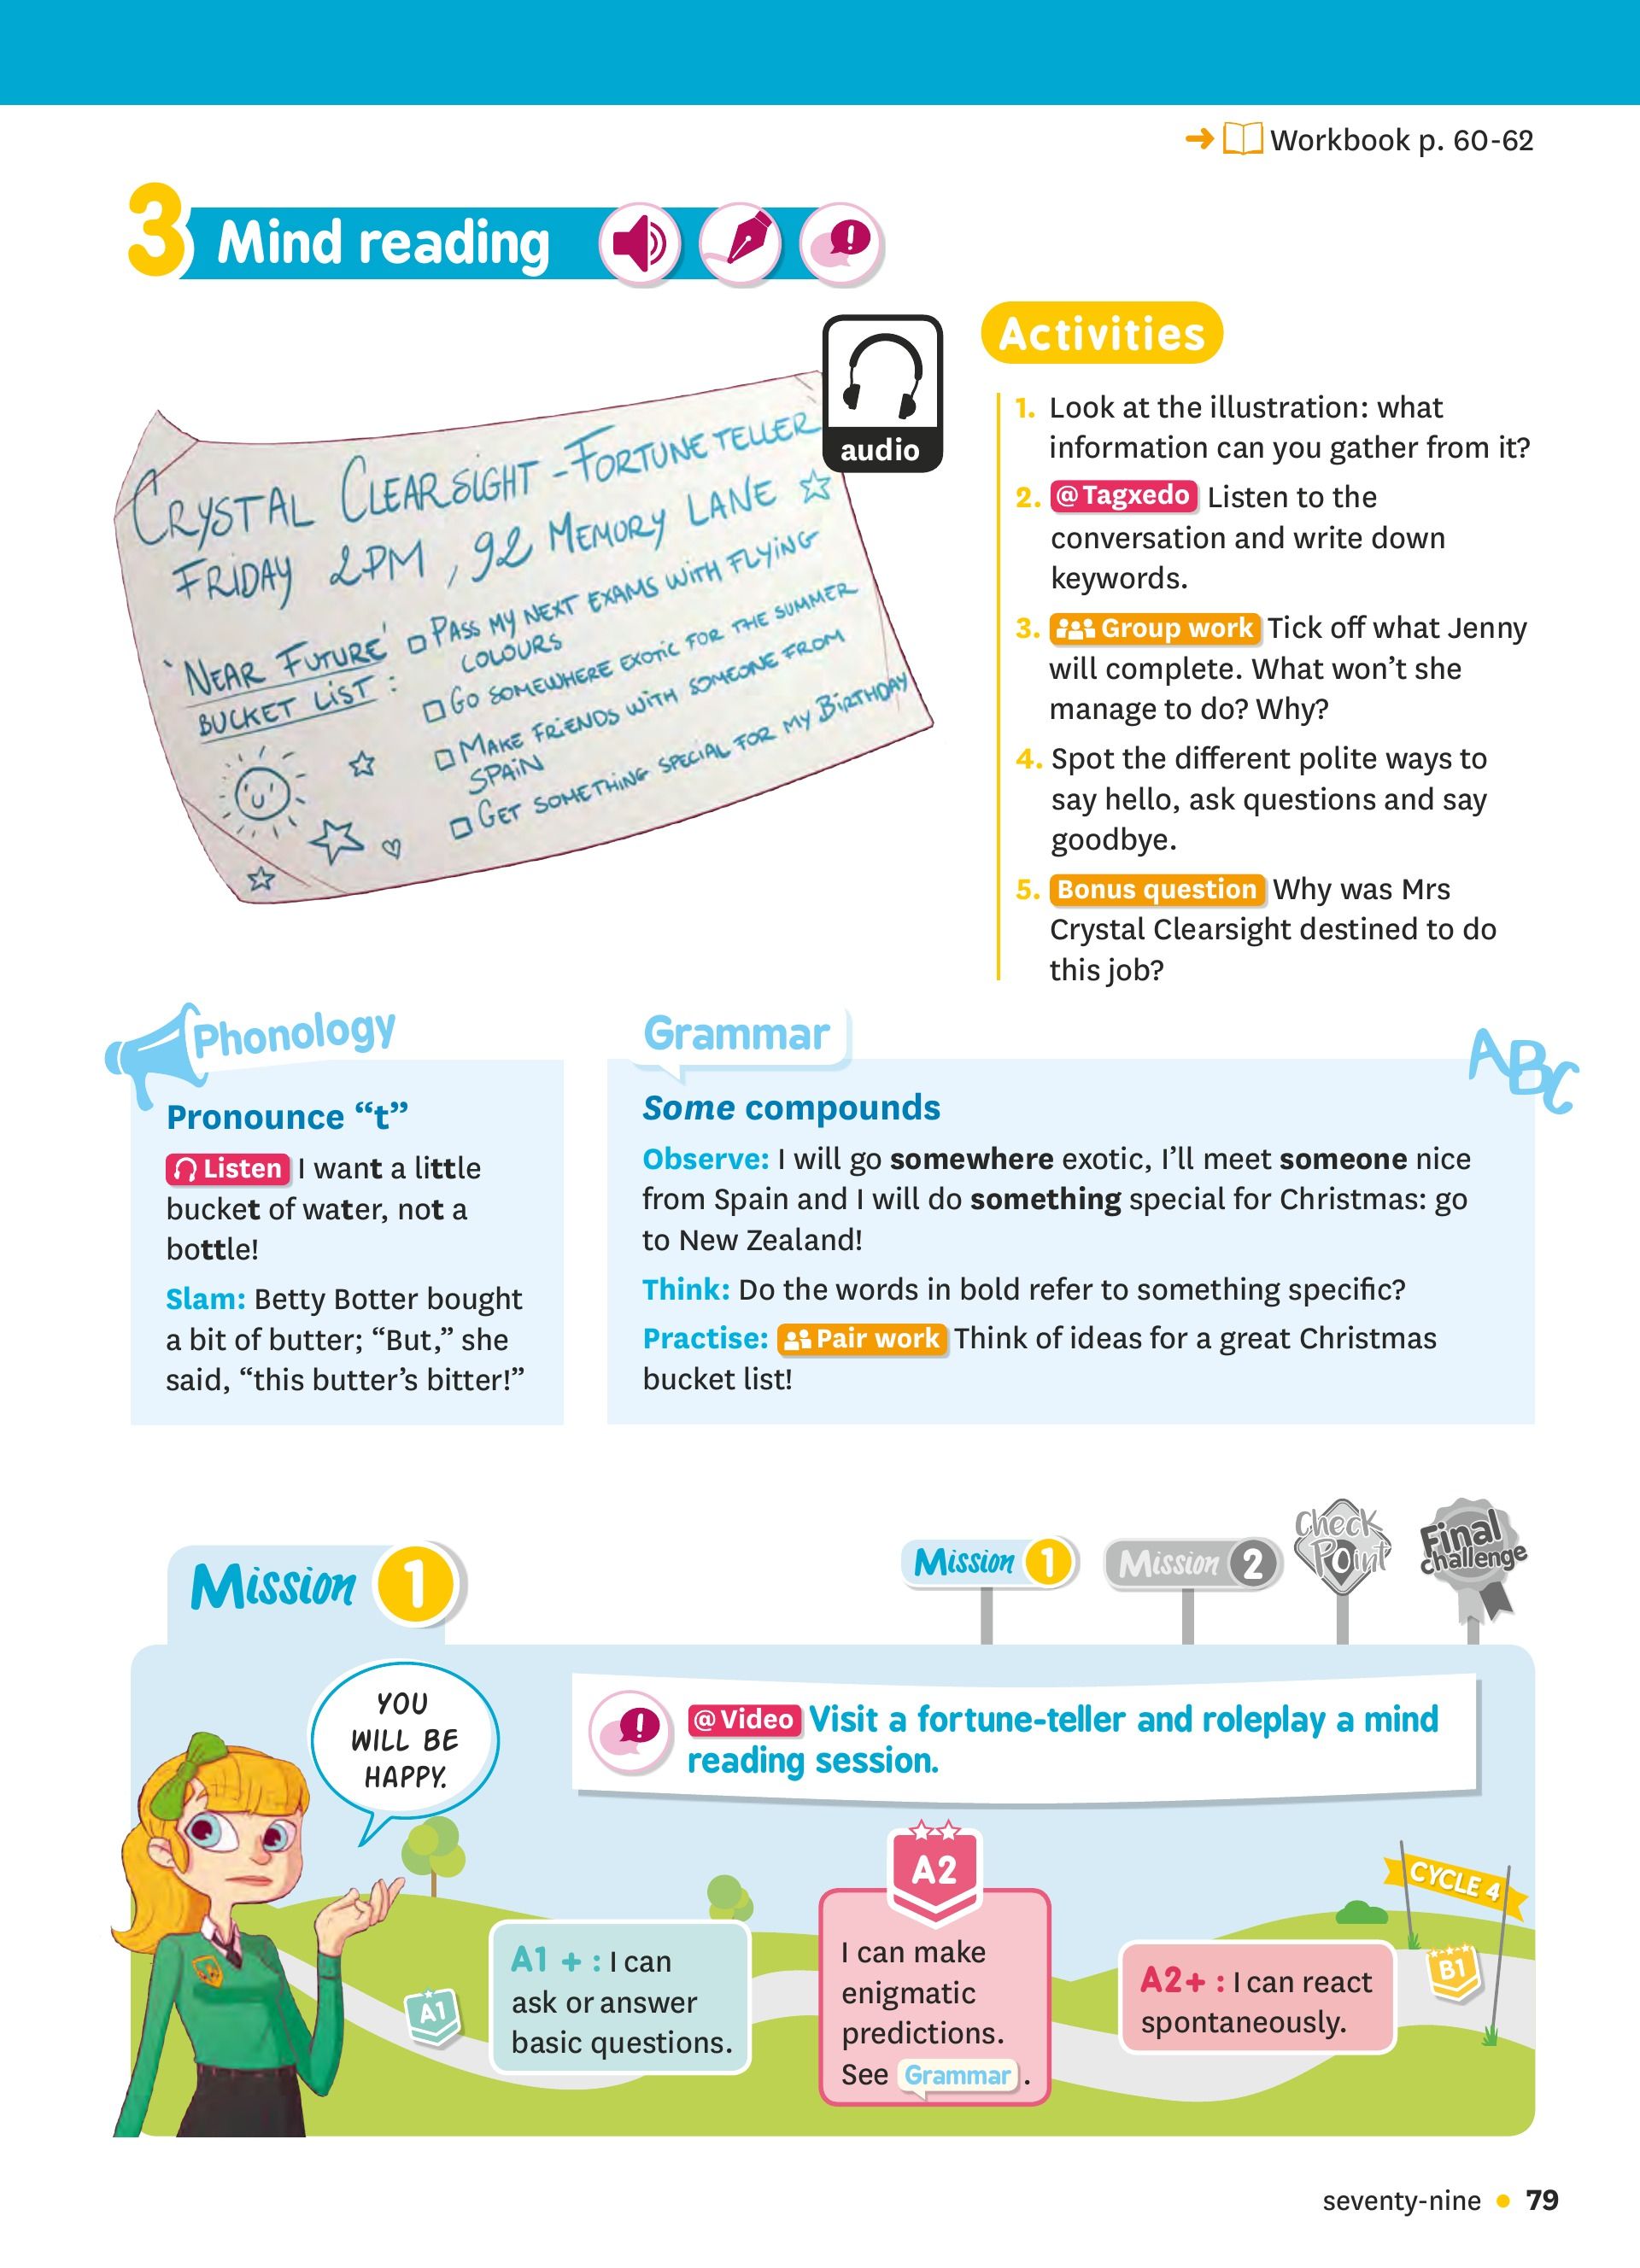 Workbook p. 60-62
3 Mind reading
audio
CRYSTAL CLEARSIGHT - FORTUNE TELLER
FRIDAY 2PM, 92 MEMORY LANE
'NEAR FUTURE'
BUCKET LIST :
PASS MY NEXT EXAMS WITH FLYING
COLOURS
GO SOMEWHERE EXOTIC FOR THE SUMMER
MAKE FRIENDS WITH SOMEONE FROM
SPAIN
GET SOMETHING SPECIAL FOR MY BIRTHDAY
Activities
1. Look at the illustration: what
information can you gather from it?
2. @Tagxedo Listen to the
conversation and write down
keywords.
3. Group work Tick off what Jenny
will complete. What won't she
manage to do? Why?
4. Spot the different polite ways to
say hello, ask questions and say
goodbye.
5. Bonus question Why was Mrs
Crystal Clearsight destined to do
this job?
Phonology
Pronounce “t”
Listen I want a little
bucket of water, not a
bottle!
Slam: Betty Botter bought
a bit of butter; “But,” she
said, “this butter's bitter!”
Grammar
ABC
Some compounds
Observe: I will go somewhere exotic, I'll meet someone nice
from Spain and I will do something special for Christmas: go
to New Zealand!
Think: Do the words in bold refer to something specific?
Practise: Pair work Think of ideas for a great Christmas
bucket list!
Mission 1
Mission 1
Mission 2
Check
Point
Final
challenge
YOU
WILL BE
HAPPY.
@Video Visit a fortune-teller and roleplay a mind
reading session.
A1
A1 + : I can
ask or answer
basic questions.
A2
I can make
enigmatic
predictions.
See Grammar.
A2+ : I can react
spontaneously.
CYCLE 4
B1
seventy-nine • 79